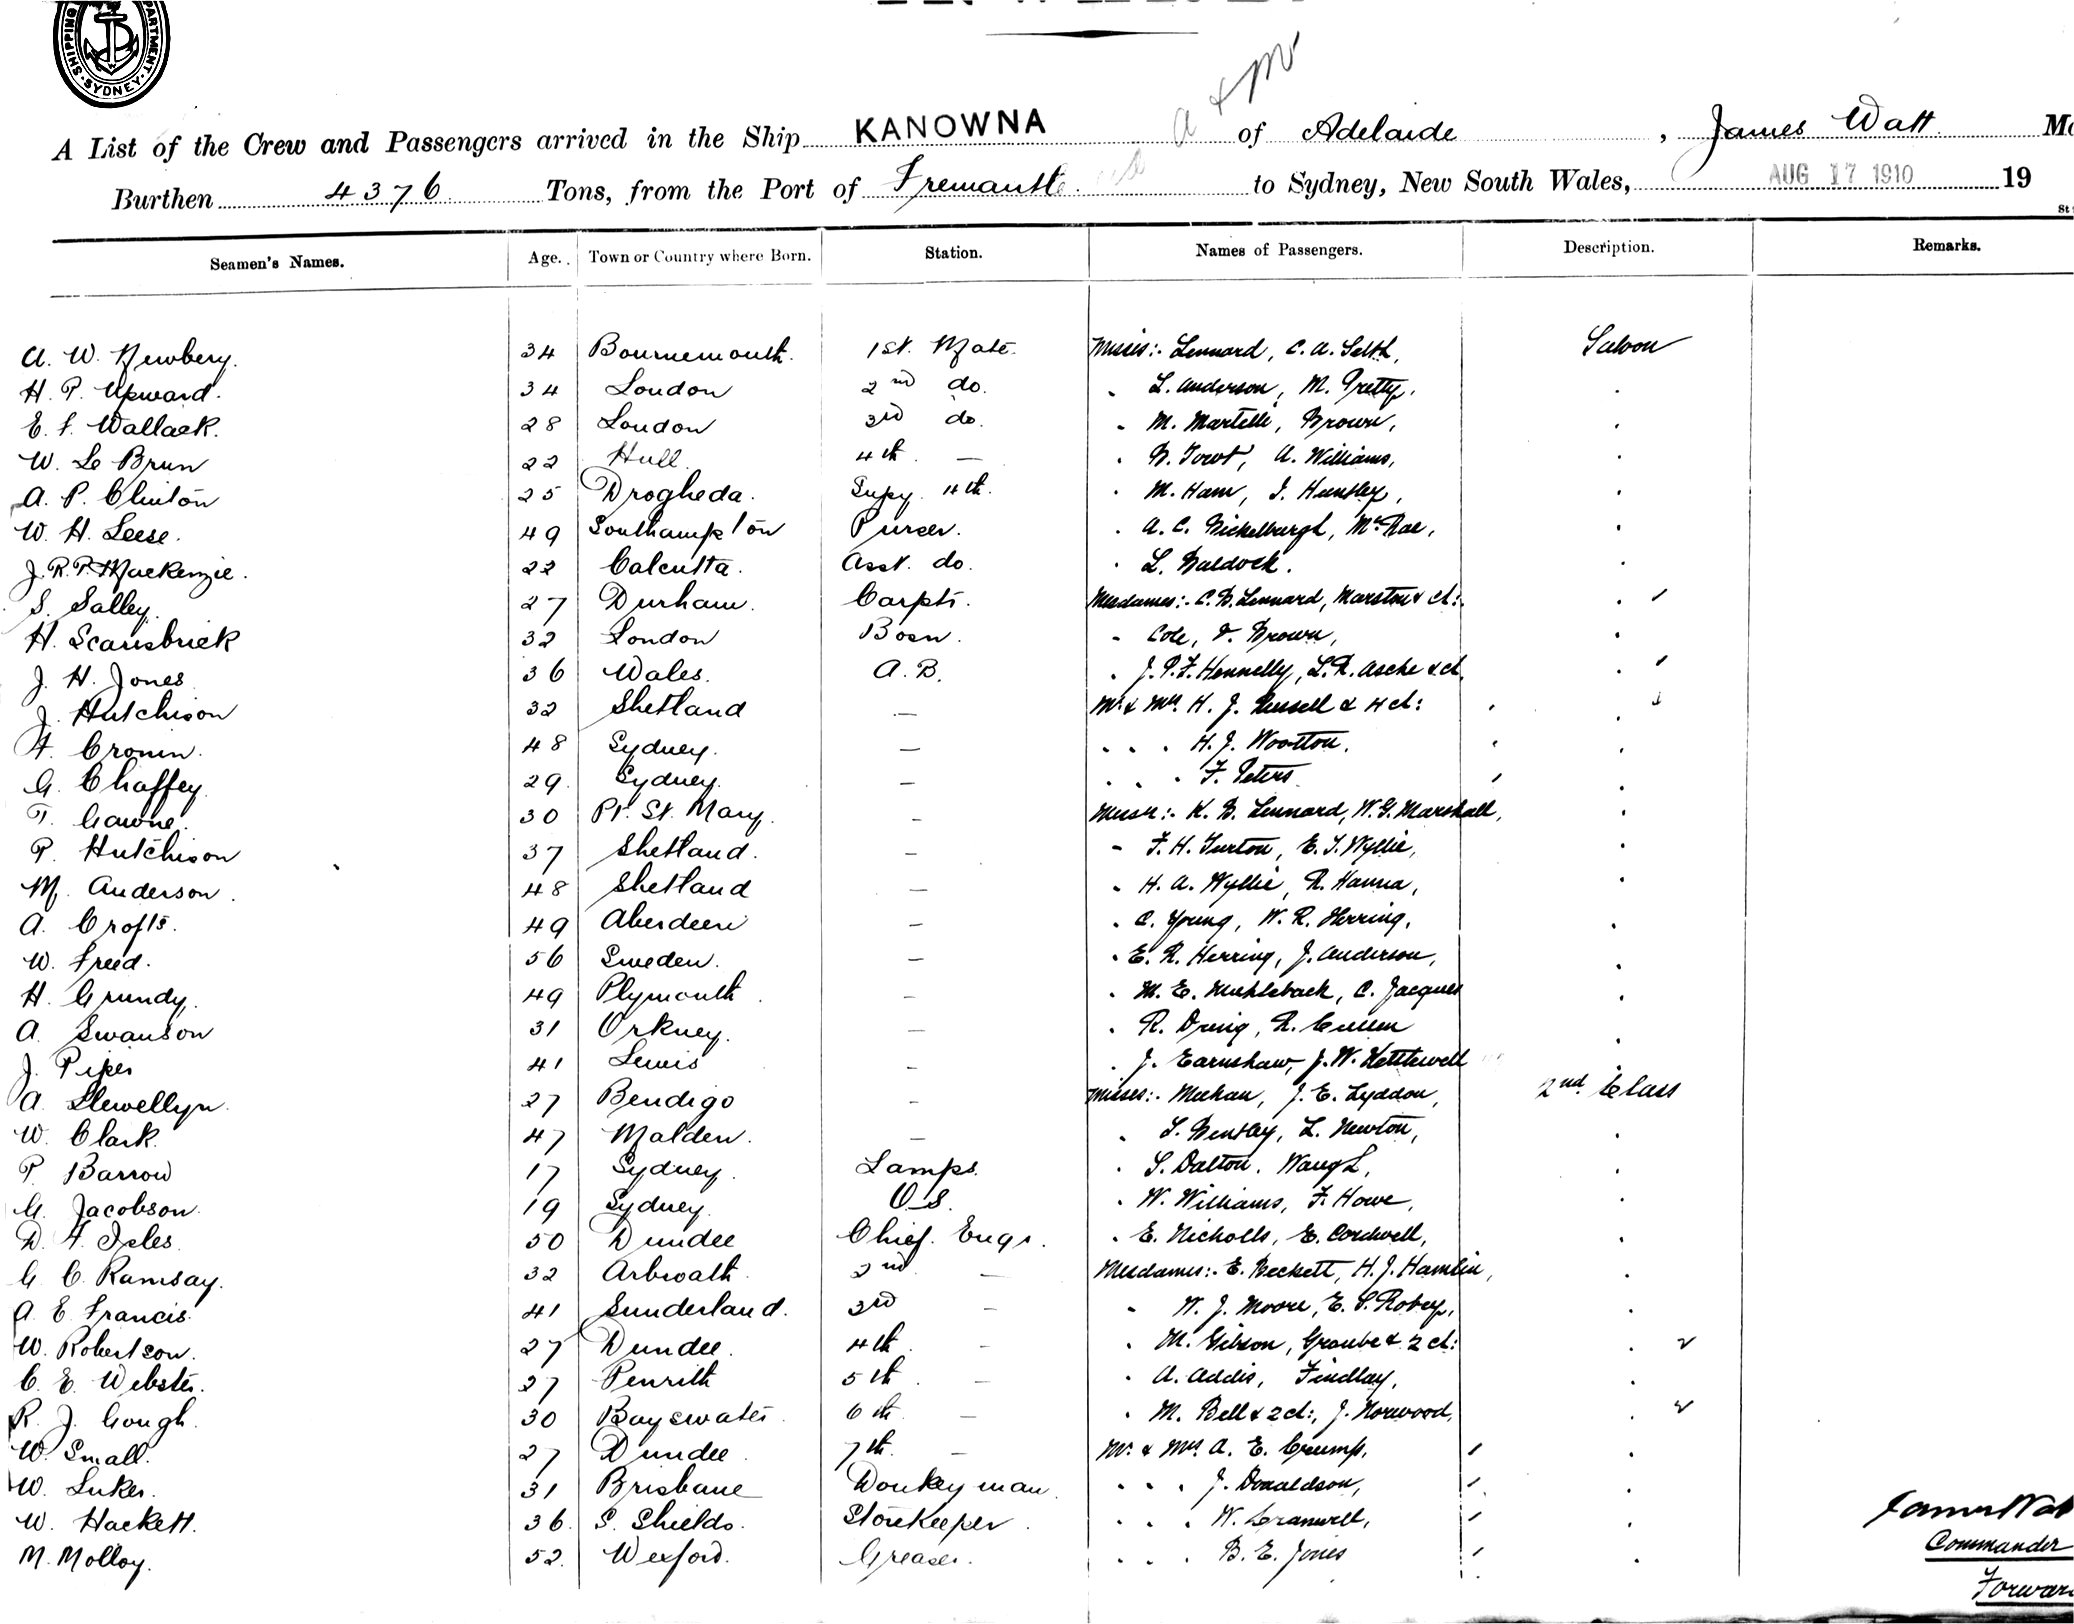 SHIPPING DEPARTMENT. SYDNEY.
A & M
A List of the Crew and Passengers arrived in the Ship KANOWNA of Adelaide, James Watt
Burthen 4376 Tons, from the Port of Fremantle to Sydney, New South Wales, AUG 17 1910 19
Seamen's Names. Age. Town or Country where Born. Station. Names of Passengers. Description. Remarks.
A. W. Newbery. 34 Bournemouth. 1st. Mate. Misses:- Lennard, C. A. Selth, Saloon
H. P. Upward. 34 London 2nd do. " L. Anderson, M. Pretty,
E. F. Wallack. 28 London 3rd do. " M. Martelli, Brown,
W. Le Brun 22 Hull 4th — " A. Williams,
A. P. Clinton 25 Drogheda. Supy. 4th. " M. Ham, I. Huntley,
W. H. Leese. 49 Southampton Purser. " A. C. McRae,
J. R. P. Mackenzie. 22 Calcutta. Asst. do. " L. Baldock.
S. Salley. 27 Durham. Carptr. Mesdames:- C. B. Lennard, Marston & ch:
H. Scarisbrick 32 London Bosn. " Cole, V. Brown,
J. H. Jones 36 Wales. A. B. " J. P. F. Hennelly, L. R. Asche & ch.
J. Hutchison 32 Shetland — Mr. & Mrs. H. J. Russell & 4 ch:
F. Cronin. 48 Sydney. — " " " H. J. Wootton.
G. Chaffey 29 Sydney. — " " " F. Peters
T. Gawne. 30 Pt. St. Mary. — Messrs:- K. B. Lennard, W. G. Marshall,
P. Hutchison 37 Shetland. — " F. H. Turton, E. J. Wyllie,
M. Anderson. 48 Shetland — " H. A. Wyllie, R. Hanna,
A. Crofts. 49 Aberdeen — " C. Young, W. R. Herring,
W. Freed. 56 Sweden. — " E. R. Herring, J. Anderson,
H. Grundy. 49 Plymouth. — " M. E. Muhleback, C. Jacques
A. Swanson 31 Orkney. — " R. R. Cullen
J. Piper 41 Lewis — " J. Earnshaw, J. W. Kettlewell
A. Llewellyn. 27 Bendigo — Misses:- Meehan, J. E. Lyddon, 2nd. Class
W. Clark. 47 Malden. — " S. Bentley, L. Newton,
P. Barrow 17 Sydney. Lamps. " S. Dalton, Waugh,
G. Jacobson. 19 Sydney. O. S. " W. Williams, F. Howe,
D. F. Isles. 50 Dundee Chief. Engr. " E. Nicholls, E. Cordwell,
G. C. Ramsay. 32 Arbroath. 2nd — Mesdames:- E. Beckett, H. J. Hamlin,
A. E. Francis. 41 Sunderland. 3rd — " W. J. Moore, E. S. Robey,
W. Robertson. 27 Dundee. 4th — " M. Gibson, Graube & 2 ch:
C. E. Webster. 27 Penrith 5th — " A. Addis, Findlay,
R. J. Gough. 30 Bayswater. 6th — " M. Bell & 2 ch:, J. Norwood,
W. Small. 27 Dundee 7th. — Mr. & Mrs. A. E. Crump,
W. Luker. 31 Brisbane Donkeyman. " " " J. Donaldson,
W. Hackett. 36. S. Shields. Storekeeper. " " " W. Cranwell,
M. Molloy. 52. Wexford. Greaser. " " " B. E. Jones
James Wat
Commander
Forwar